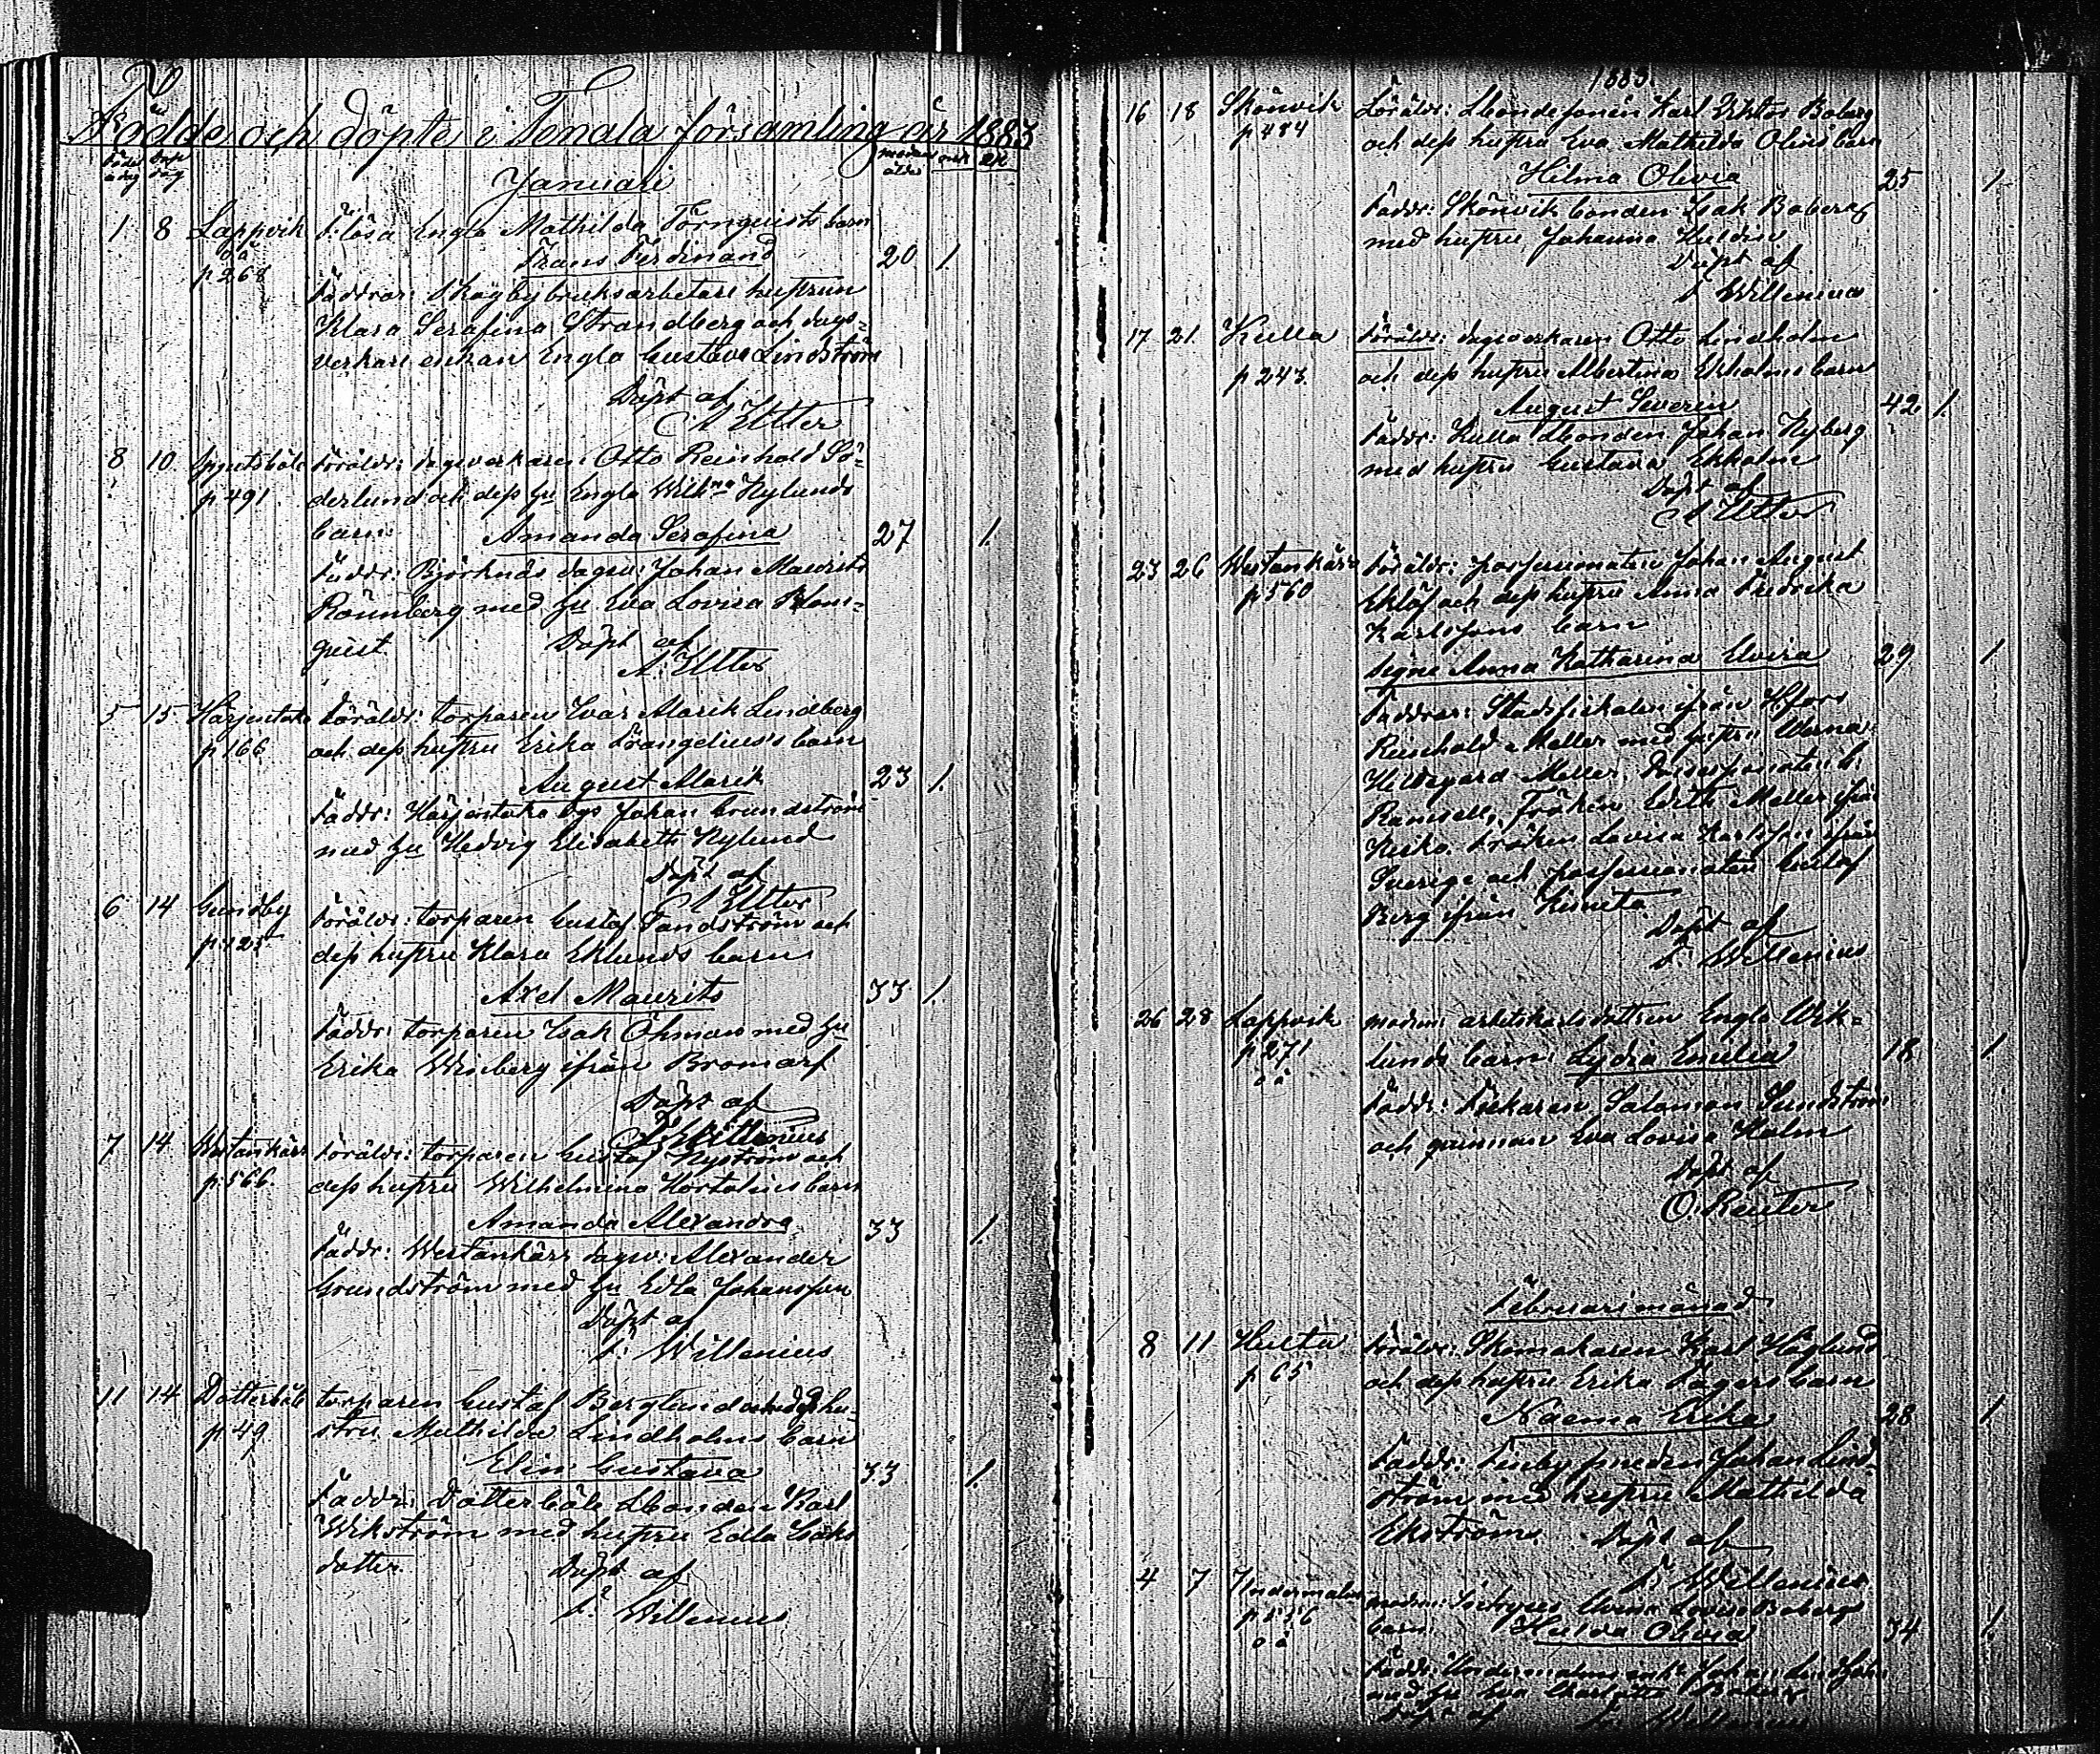 Födde och döpte i Tenala församling år 1883
Januari
1 8 Lappvik Flösa Engla Mathilda Törnquists barn
o ä Frans Ferdinand 20 1.
p 268
Faddrar: Skogby bruksarbetare hustrun
Klara Serafina Strandberg och dags-
verkare enkan Engla Gustava Lindström
Döpt af
A Etter
8 10 Föräldr: dagsverkaren Otto Reinhold Sö-
p 491 derlund och dess hu Engla Wilhna Nylunds
barn: Amanda Serafina 27 1.
Faddr: Björknäs dagsv: Johan Mauritz
Rönnberg med hu Eva Lovisa Blom-
quist Döpt af
A. Etter
5 15 Föräldr: torparen Ivar Alarik Lindberg
p 166 och dess hustru Erika barn
August Alarik 23 1.
Faddr: Johan Grundström
med hu Hedvig Elisabeth Nylund
Döpt af
A Etter
6 14 Gundby Föräldr: torparen Gustaf Sandström och
p 125 dess hustru Klara Eklunds barn
Axel Maurits 33 1.
Faddr: torparen Isak Öhman med hu
Erika Winberg ifrån Bromarf
Döpt af
F. Willenius
7 14 Westankärr Föräldr: torparen Gustaf Nyström och
p 566. dess hustru Wilhelmina barn
Amanda Alexandra 33 1.
Faddr: Westankärr dagsv: Alexander
Grundström med hu Edla Johansson
Döpt af
F. Willenius
11 14 Dotterböle torparen Gustaf Berglund och dess hu-
p 49 stru Mathilda Lindholms barn
Elin Gustava 33 1.
Faddr: Dotterböle Lbonden Karl
Wikström med hustru Edla Isaks
dotter. Döpt af
F. Willenius
1883.
16 18 Skönvik Föräldr: Lbondesonen Karl Viktor Boberg
p 484 och dess hustru Eva Mathilda Olins barn
Hilma Olivia 25 1
Faddr: Skönvik bonden Isak Boberg
med hustru Johanna
Döpt af
F Willenius
17 21. Kulla Föräldr: dagsverkaren Otto Lindholm
p 243. och dess hustru Albertina Ekholms barn
August Severin 42 1.
Faddr: Kulla Lbonden Johan Nyberg
med hustru Gustava Ekholm
Döpt af
A Etter
23 26 Westankärr Föräldr: possessionaten Johan August
p 560 Eklöf och dess hustru Anna Fredrika
Karlssons barn
Signe Anna Katharina Elvira 29 1
Faddrar: Stadsfiskalen ifrån Hfors
Reinhold Meller med hustru
Hildegard Meller,
Fröken Edith Meller ifrån
Kisko. Fröken Lovisa Karlsson ifrån
Sverige och possessionaten Gustaf
Berg ifrån Kimito
Döpt af
F. Willenius
26 28 Lappvik modren: arbetskarlsdottren Engla Wik-
p 271 lunds barn: Lydia Emilia 18 1
o ä
Faddr: Fiskaren Salomon Sundström
och qvinnan Eva Lovisa Holm
Döpt af
O. Reuter
Februari månad
8 11 Hulta Föräldr: Skomakaren Karl Höglund
p 65 och dess hustru Erika Fagers barn
Naema Erika 28 1
Faddr: Finby smeden Johan Lind-
ström med hustru Mathilda
Ekström. Döpt af
F. Willenius
4 7 modren: Lovisa Bobergs
o ä barn: Hulda Olivia 34 1.
Faddr: Johan
med hu Eva Charlotta Boberg
Döpt af F. Willenius